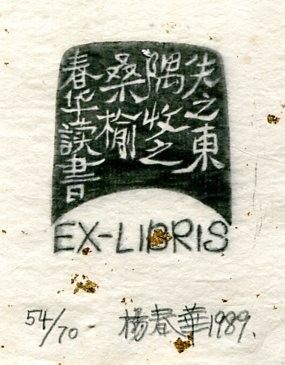 失之東
隅收之
桑榆
春华讀書
EX-LIBRIS
54/70 楊春華1989.